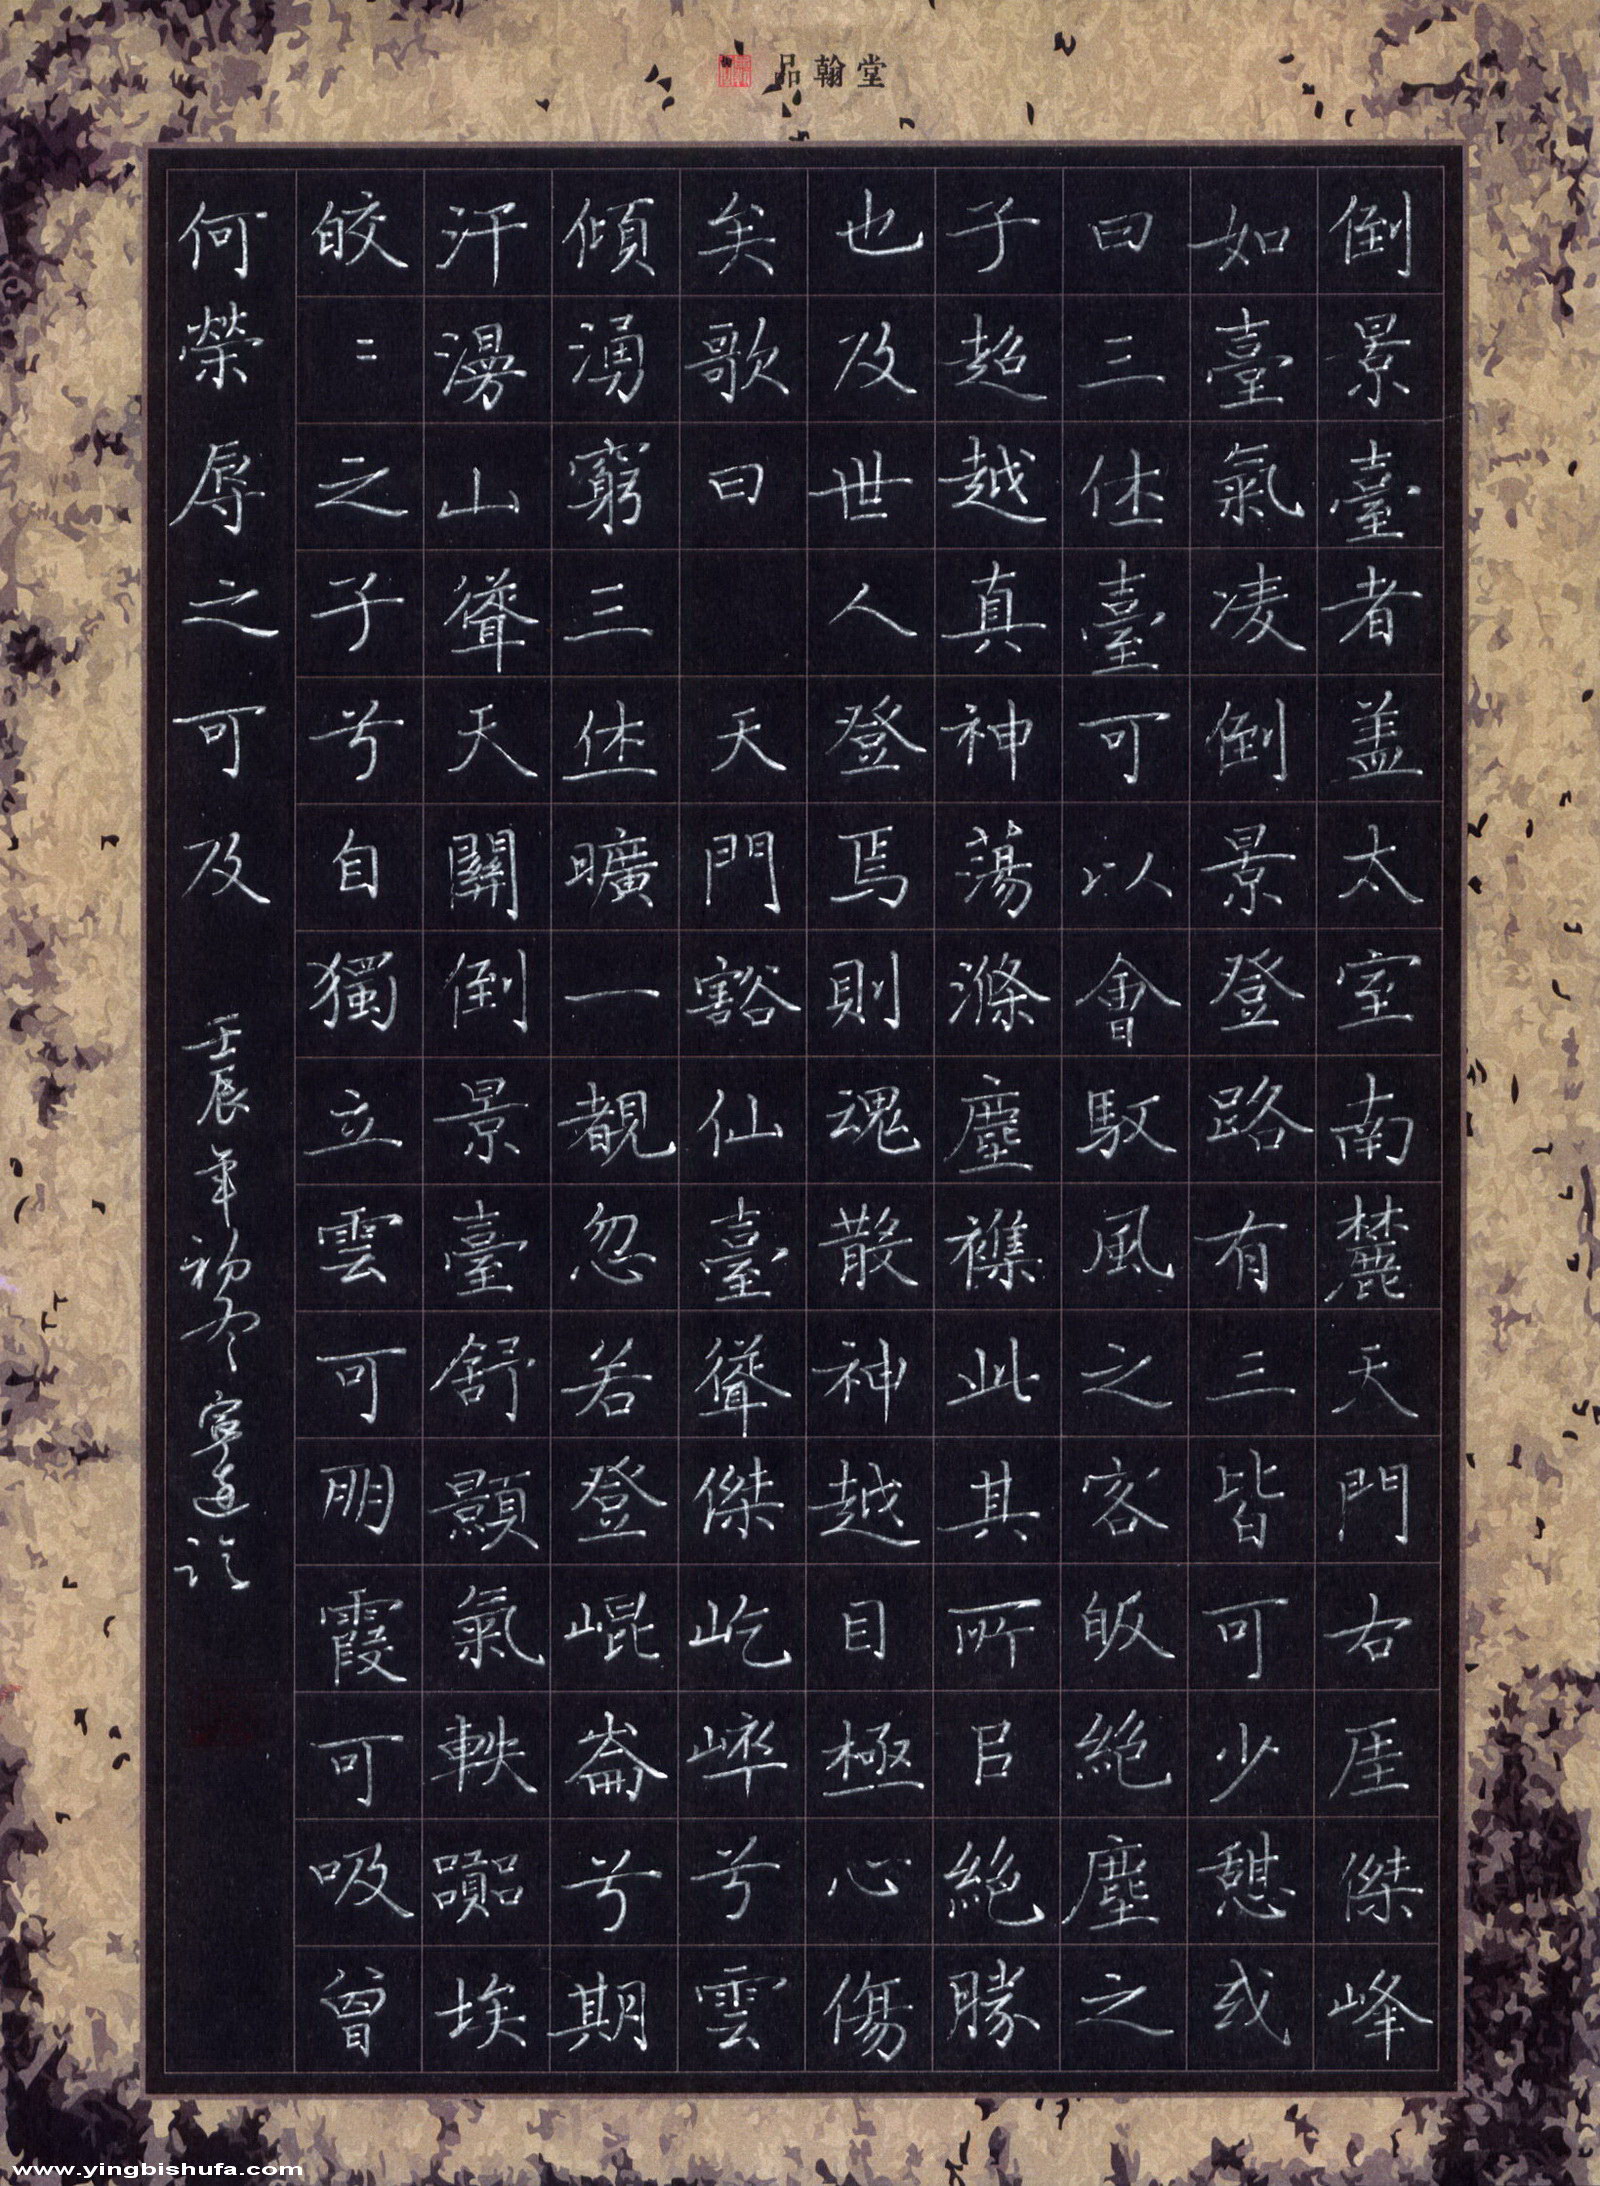 品翰堂
倒景臺者盖太室南麓天門右厓傑峰
如臺氣凌倒景登路有三皆可少憩或
曰三休臺可以會馭風之客皈絕塵之
子超越真神蕩滌塵襟此其所㠯絕勝
也及世人登焉則魂散神越目極心傷
矣歌曰 天門豁仙臺聳傑屹崒兮雲
傾湧窮三休曠一覩忽若登崐崙兮期
汗漫山聳天關倒景臺舒顥氣軼囂埃
皎〻之子兮自獨立雲可朋霞可吸曾
何榮辱之可及 壬辰年初冬
www.yingbishufa.com